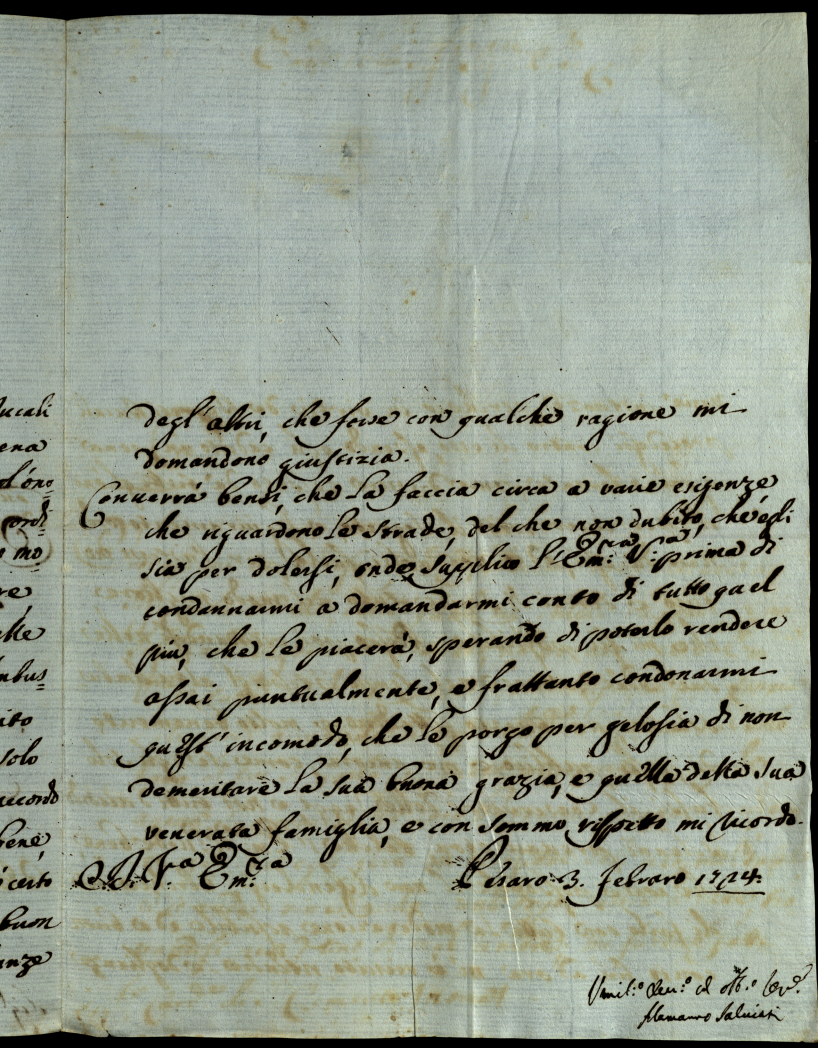 ucali
ena
mo
re
nbus=
ito
solo
ricordo
bene,
certo
buon
anze
degl'altri, che forse con qualche ragione mi
domandono giustizia.
Converrà bensì, che la faccia circa a varie esigenze
che riguardono le strade, del che non dubito, che egli
sia per dolersi, onde supplico l'Em:ra V:ra prima di
condannarmi à domandarmi conto di tutto quel
più, che le piacerà, sperando di poterlo rendere
assai puntualmente, e frattanto condonarmi
quest'incomodo, che le porgo per gelosia di non
demeritare la sua buona grazia, e quella della sua
venerata famiglia, e con sommo rispetto mi ricordo.
D. V.ra Em:ra
Pesaro 3. Febraro 1724.
Umil:o Dev:o ed Obb:o Ser.e
Alamanno Salviati